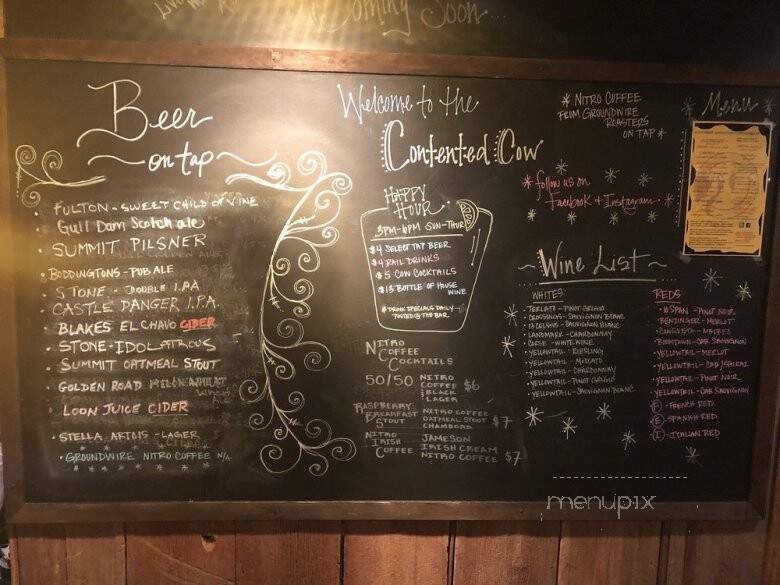 Coming Soon...
Beer
on tap
FULTON - SWEET CHILD OF VINE
Gull Dam Scotch ale
SUMMIT PILSNER
BODDINGTONS - PUB ALE
STONE - DOUBLE I.P.A
CASTLE DANGER I.P.A.
BLAKES EL CHAVO CIDER
STONE - IDOLATROUS
SUMMIT OATMEAL STOUT
GOLDEN ROAD MELON WHEAT
LOON JUICE CIDER
STELLA ARTOIS - LAGER
GROUNDWIRE NITRO COFFEE N/A
Welcome to the
Contented Cow
HAPPY
HOUR
3PM-6PM SUN-THUR
$4 SELECT TAP BEER
$4 RAIL DRINKS
$5 COW COCKTAILS
$13 BOTTLE OF HOUSE
WINE
* DRINK SPECIALS DAILY
POSTED @ THE BAR
NITRO
COFFEE
COCKTAILS
50/50 NITRO
COFFEE $6
BLACK
LAGER
RASPBERRY NITRO COFFEE
BREAKFAST OATMEAL STOUT $7
STOUT CHAMBORD
NITRO JAMESON
IRISH IRISH CREAM
COFFEE NITRO COFFEE $7
* NITRO COFFEE
FROM GROUNDWIRE
ROASTERS
ON TAP *
* follow us on
Facebook + Instagram
Menu
Wine List
WHITES:
TERLATO - PINOT GRIGIO
SAUVIGNON BLANC
SAUVIGNON BLANC
LANDMARK - CHARDONNAY
WHITE WINE
YELLOWTAIL - RIESLING
YELLOWTAIL - MOSCATO
YELLOWTAIL - CHARDONNAY
YELLOWTAIL - PINOT GRIGIO
YELLOWTAIL - SAUVIGNON BLANC
REDS:
PINOT NOIR
BENZIGER - MERLOT
MALBEC
CAB SAUVIGNON
YELLOWTAIL - MERLOT
YELLOWTAIL - CAB/SHIRAZ
YELLOWTAIL - PINOT NOIR
YELLOWTAIL - CAB SAUVIGNON
F - FRENCH RED
S - SPANISH RED
I - ITALIAN RED
menupix